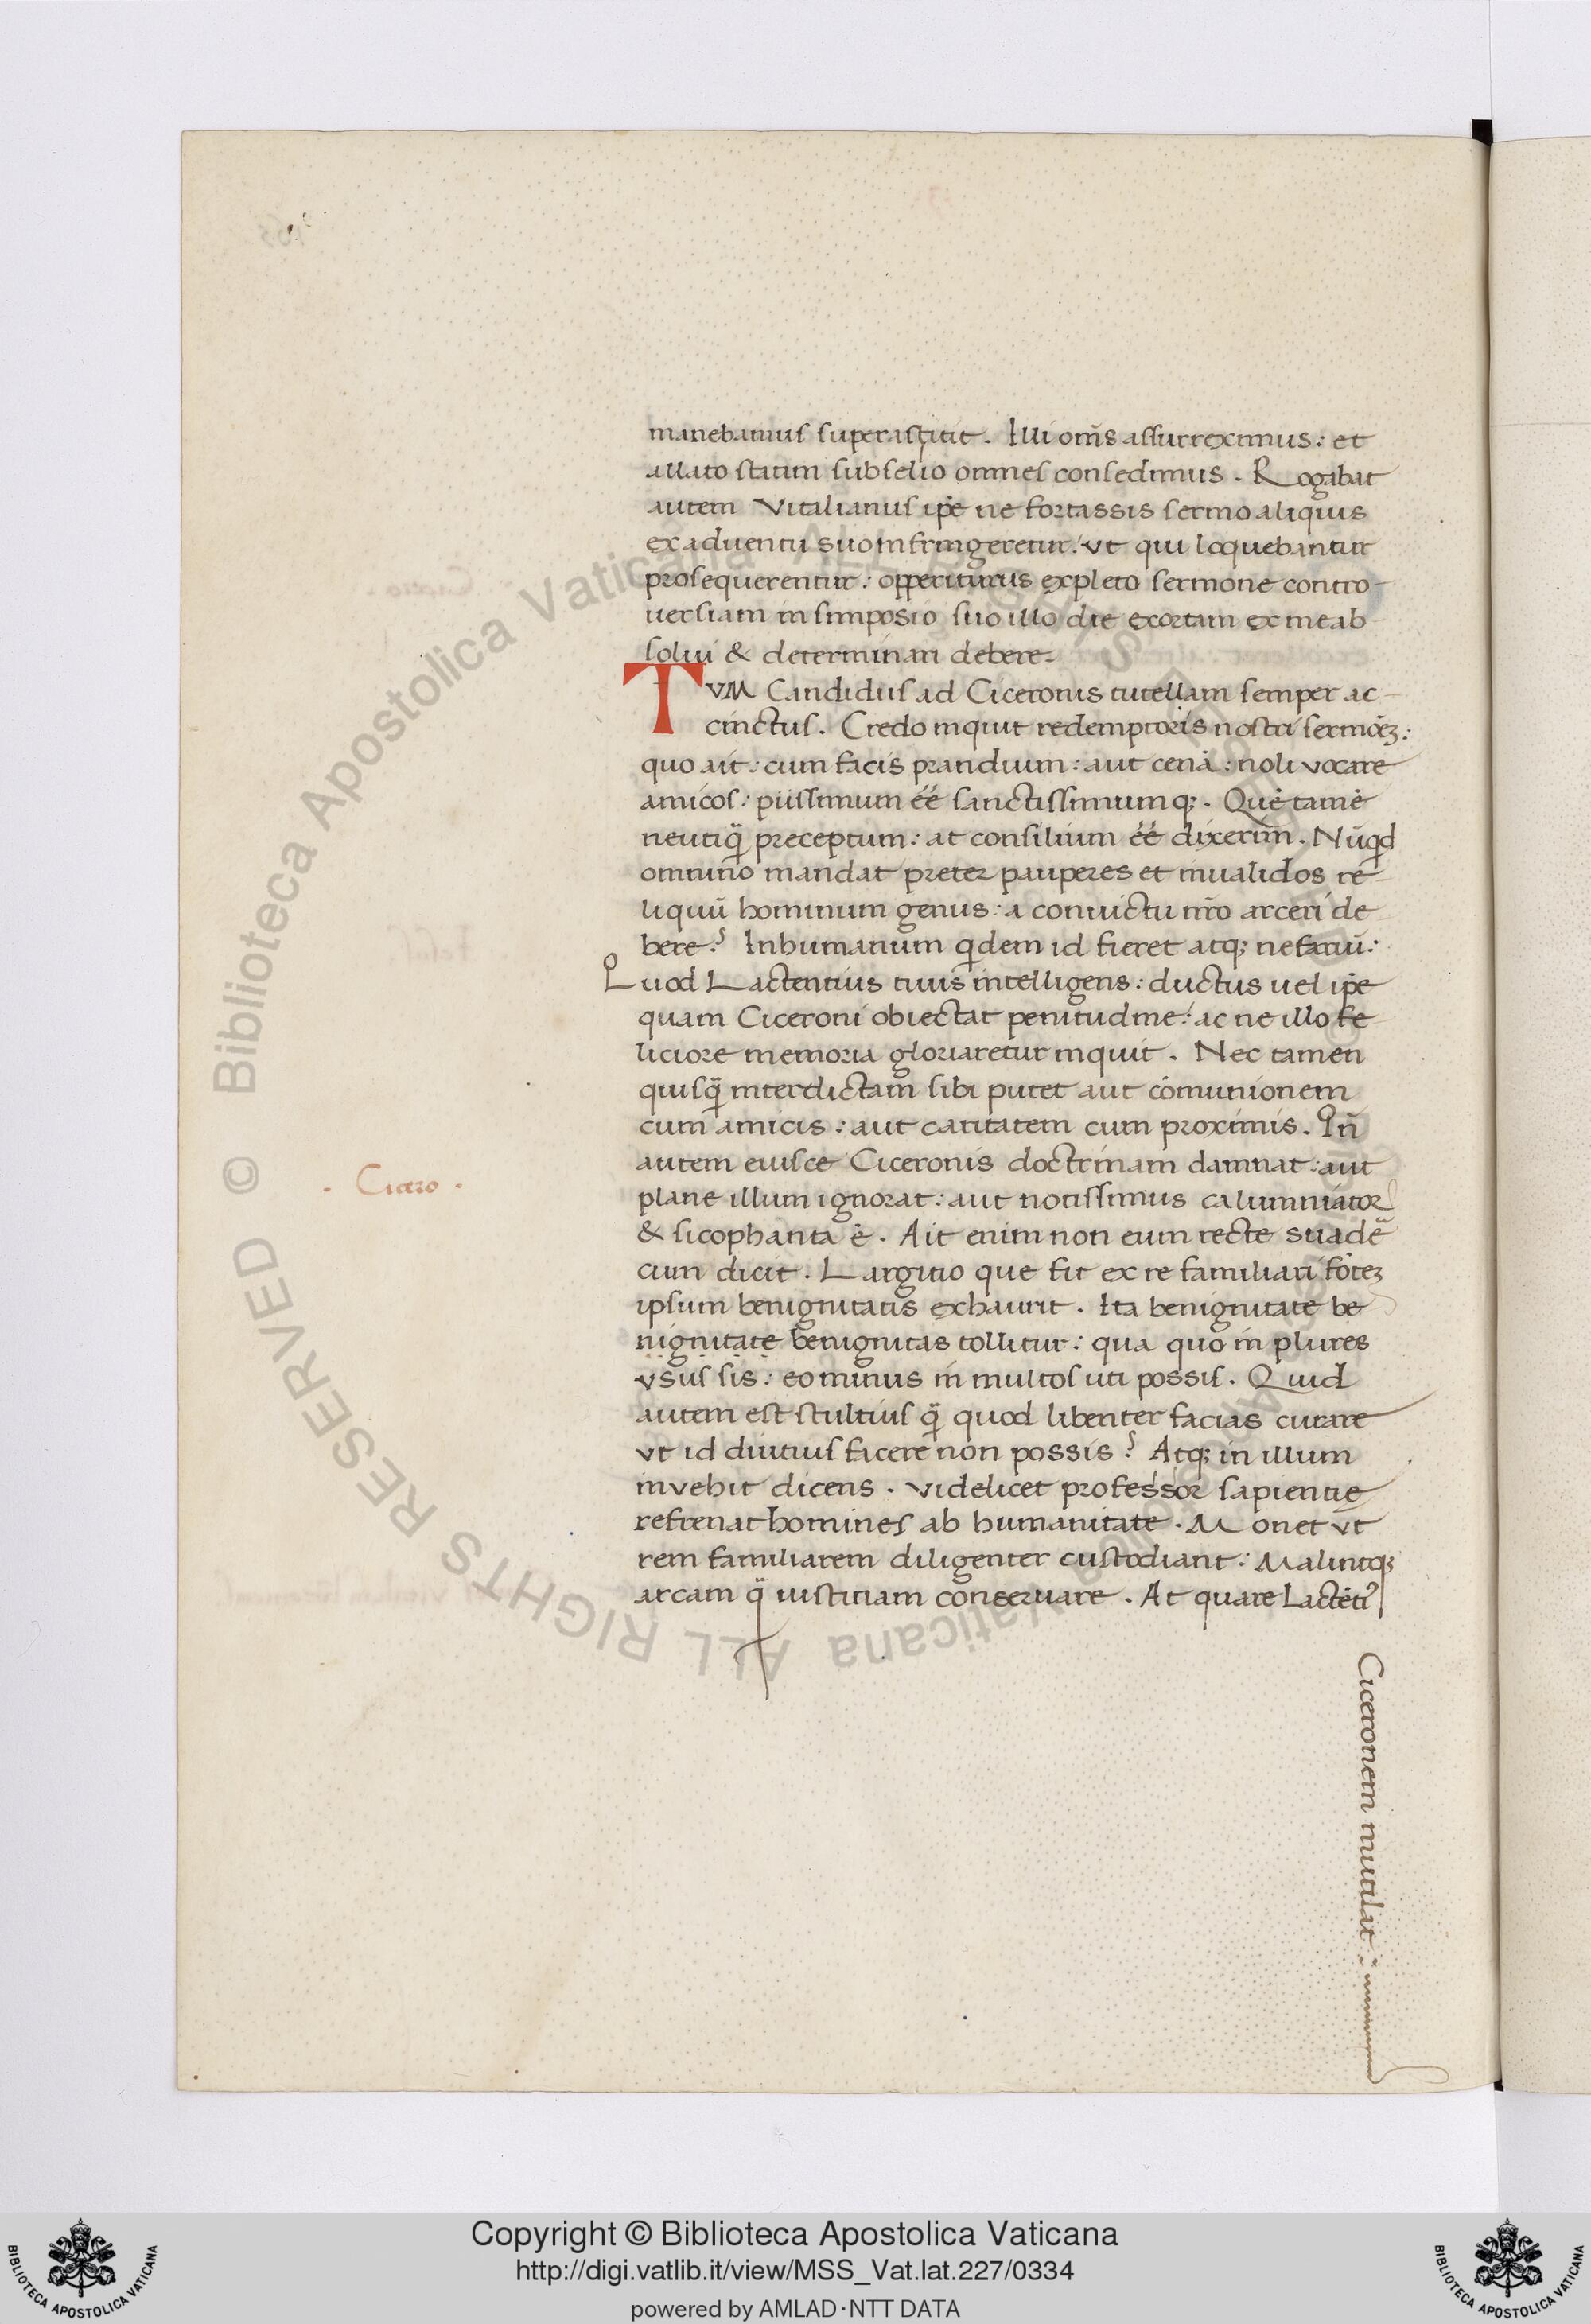 manebamus superastitit. Illi om̄s assurreximus: et
allato statim subselio omnes consedimus. Rogabat
autem Vitalianus ip̄e ne fortassis sermo aliquis
ex aduentu suo infringeretur: vt qui loquebantur
prosequerentur: opperiturus expleto sermone contro-
uersiam in simposio suo illo die exortam ex me ab
solui & determinari debere.
TVM Candidus ad Ciceronis tutellam semper ac-
cinctus. Credo inquit redemptoris nostri sermōeꝫ:
quo ait: cum facis prandium: aut cenā: noli vocare
amicos: piissimum éé sanctissimumqꝫ. Quē tamē
neutiq̄ preceptum: at consilium éé dixerim. Nūqd
omnino mandat preter pauperes et inualidos re-
liquū hominum genus: a conuictu nr̄o arceri de
bere? Inhumanum qidem id fieret atqꝫ nefariū:
Quod Lactentius tuus intelligens: ductus uel ip̄e
quam Ciceroni obiectat penitudine: ac ne illo fe
liciore memoria gloriaretur inquit. Nec tamen
quisq̄ interdictam sibi putet aut cōmunionem
cum amicis: aut caritatem cum proximis. In̄
autem eiusce Ciceronis doctrinam damnat: aut
plane illum ignorat: aut notissimus calumniator
& sicophanta ē. Ait enim non eum recte suadē
cum dicit. Largitio que fit ex re familiari fōteꝫ
ipsum benignitatis exhaurit. Ita benignitate be
nignitate benignitas tollitur: qua quo in plures
vsus sis: eo minus in multos uti possis. Quid
autem est stultius q̄ quod libenter facias curare
vt id diutius facere non possis? Atqꝫ in illum
invehit dicens. videlicet professor sapientie
refrenat homines ab humanitate. Monet vt
rem familiarem diligenter custodiant: Malintqꝫ
arcam q̄ iustitiam conseruare. At quare Lactēti⁹
. Cicero .
Ciceronem mutilat:
Copyright © Biblioteca Apostolica Vaticana
http://digi.vatlib.it/view/MSS_Vat.lat.227/0334
powered by AMLAD·NTT DATA
BIBLIOTECA APOSTOLICA VATICANA
BIBLIOTECA APOSTOLICA VATICANA
© Biblioteca Apostolica Vaticana ALL RIGHTS RESERVED